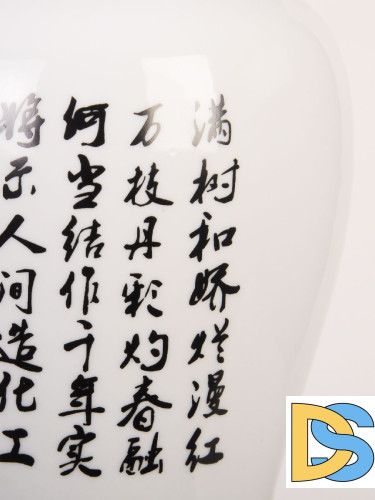 满树和娇烂漫红
万枝丹彩灼春融
何当结作千年实
将示人间造化工
DS